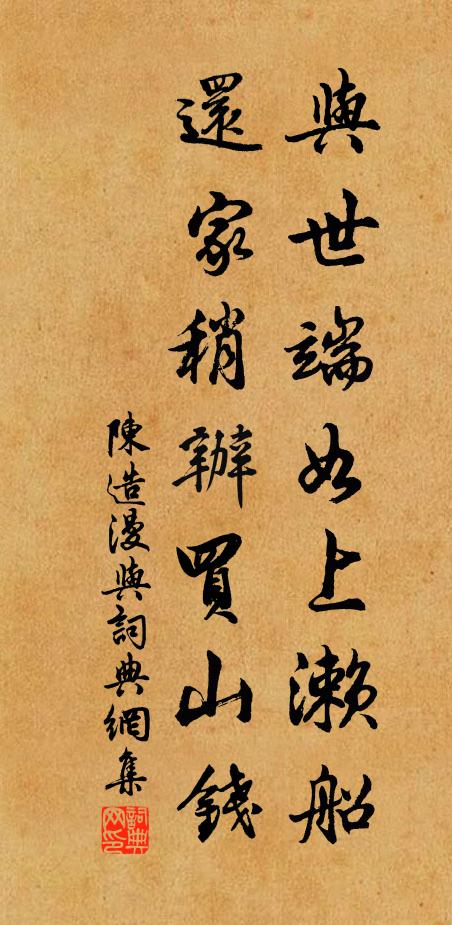 與世端如上濑船
還家稍辦買山錢
陳造漫與詞典網集
詞典網印